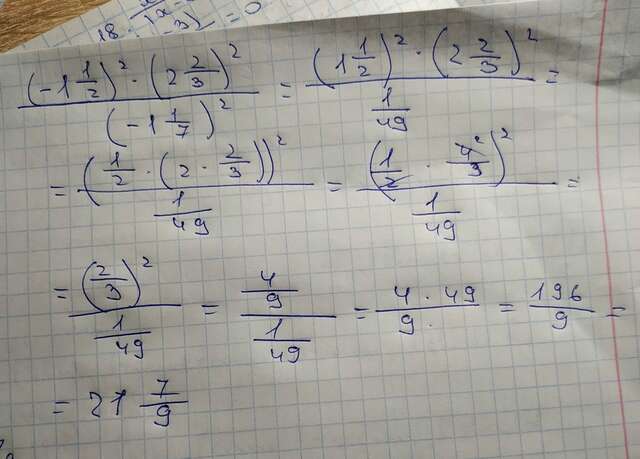 18 · (x - 3) = 0
(-1 1/2)² · (2 2/3)² / (-1 1/7)² = (1 1/2)² · (2 2/3)² / (1/49) =
= (1/2 · (2 · 2/3))² / (1/49) = (1/2 · 4²/3)² / (1/49) =
= (2/3)² / (1/49) = (4/9) / (1/49) = 4 · 49 / 9 · = 196/9 =
= 21 7/9